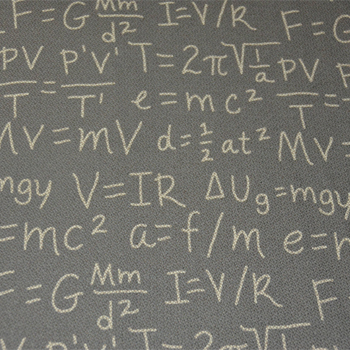 F = G Mm/d² I=V/R F = G
PV/T = P'V'/T' T = 2π√1/a PV/T = P
e = mc²
Mv = mV d = ½ at² Mv =
mgy V = IR ΔUg = mgy
= mc² a = f/m e = m
F = G Mm/d² I=V/R F
PV P'V' T = 2π√1